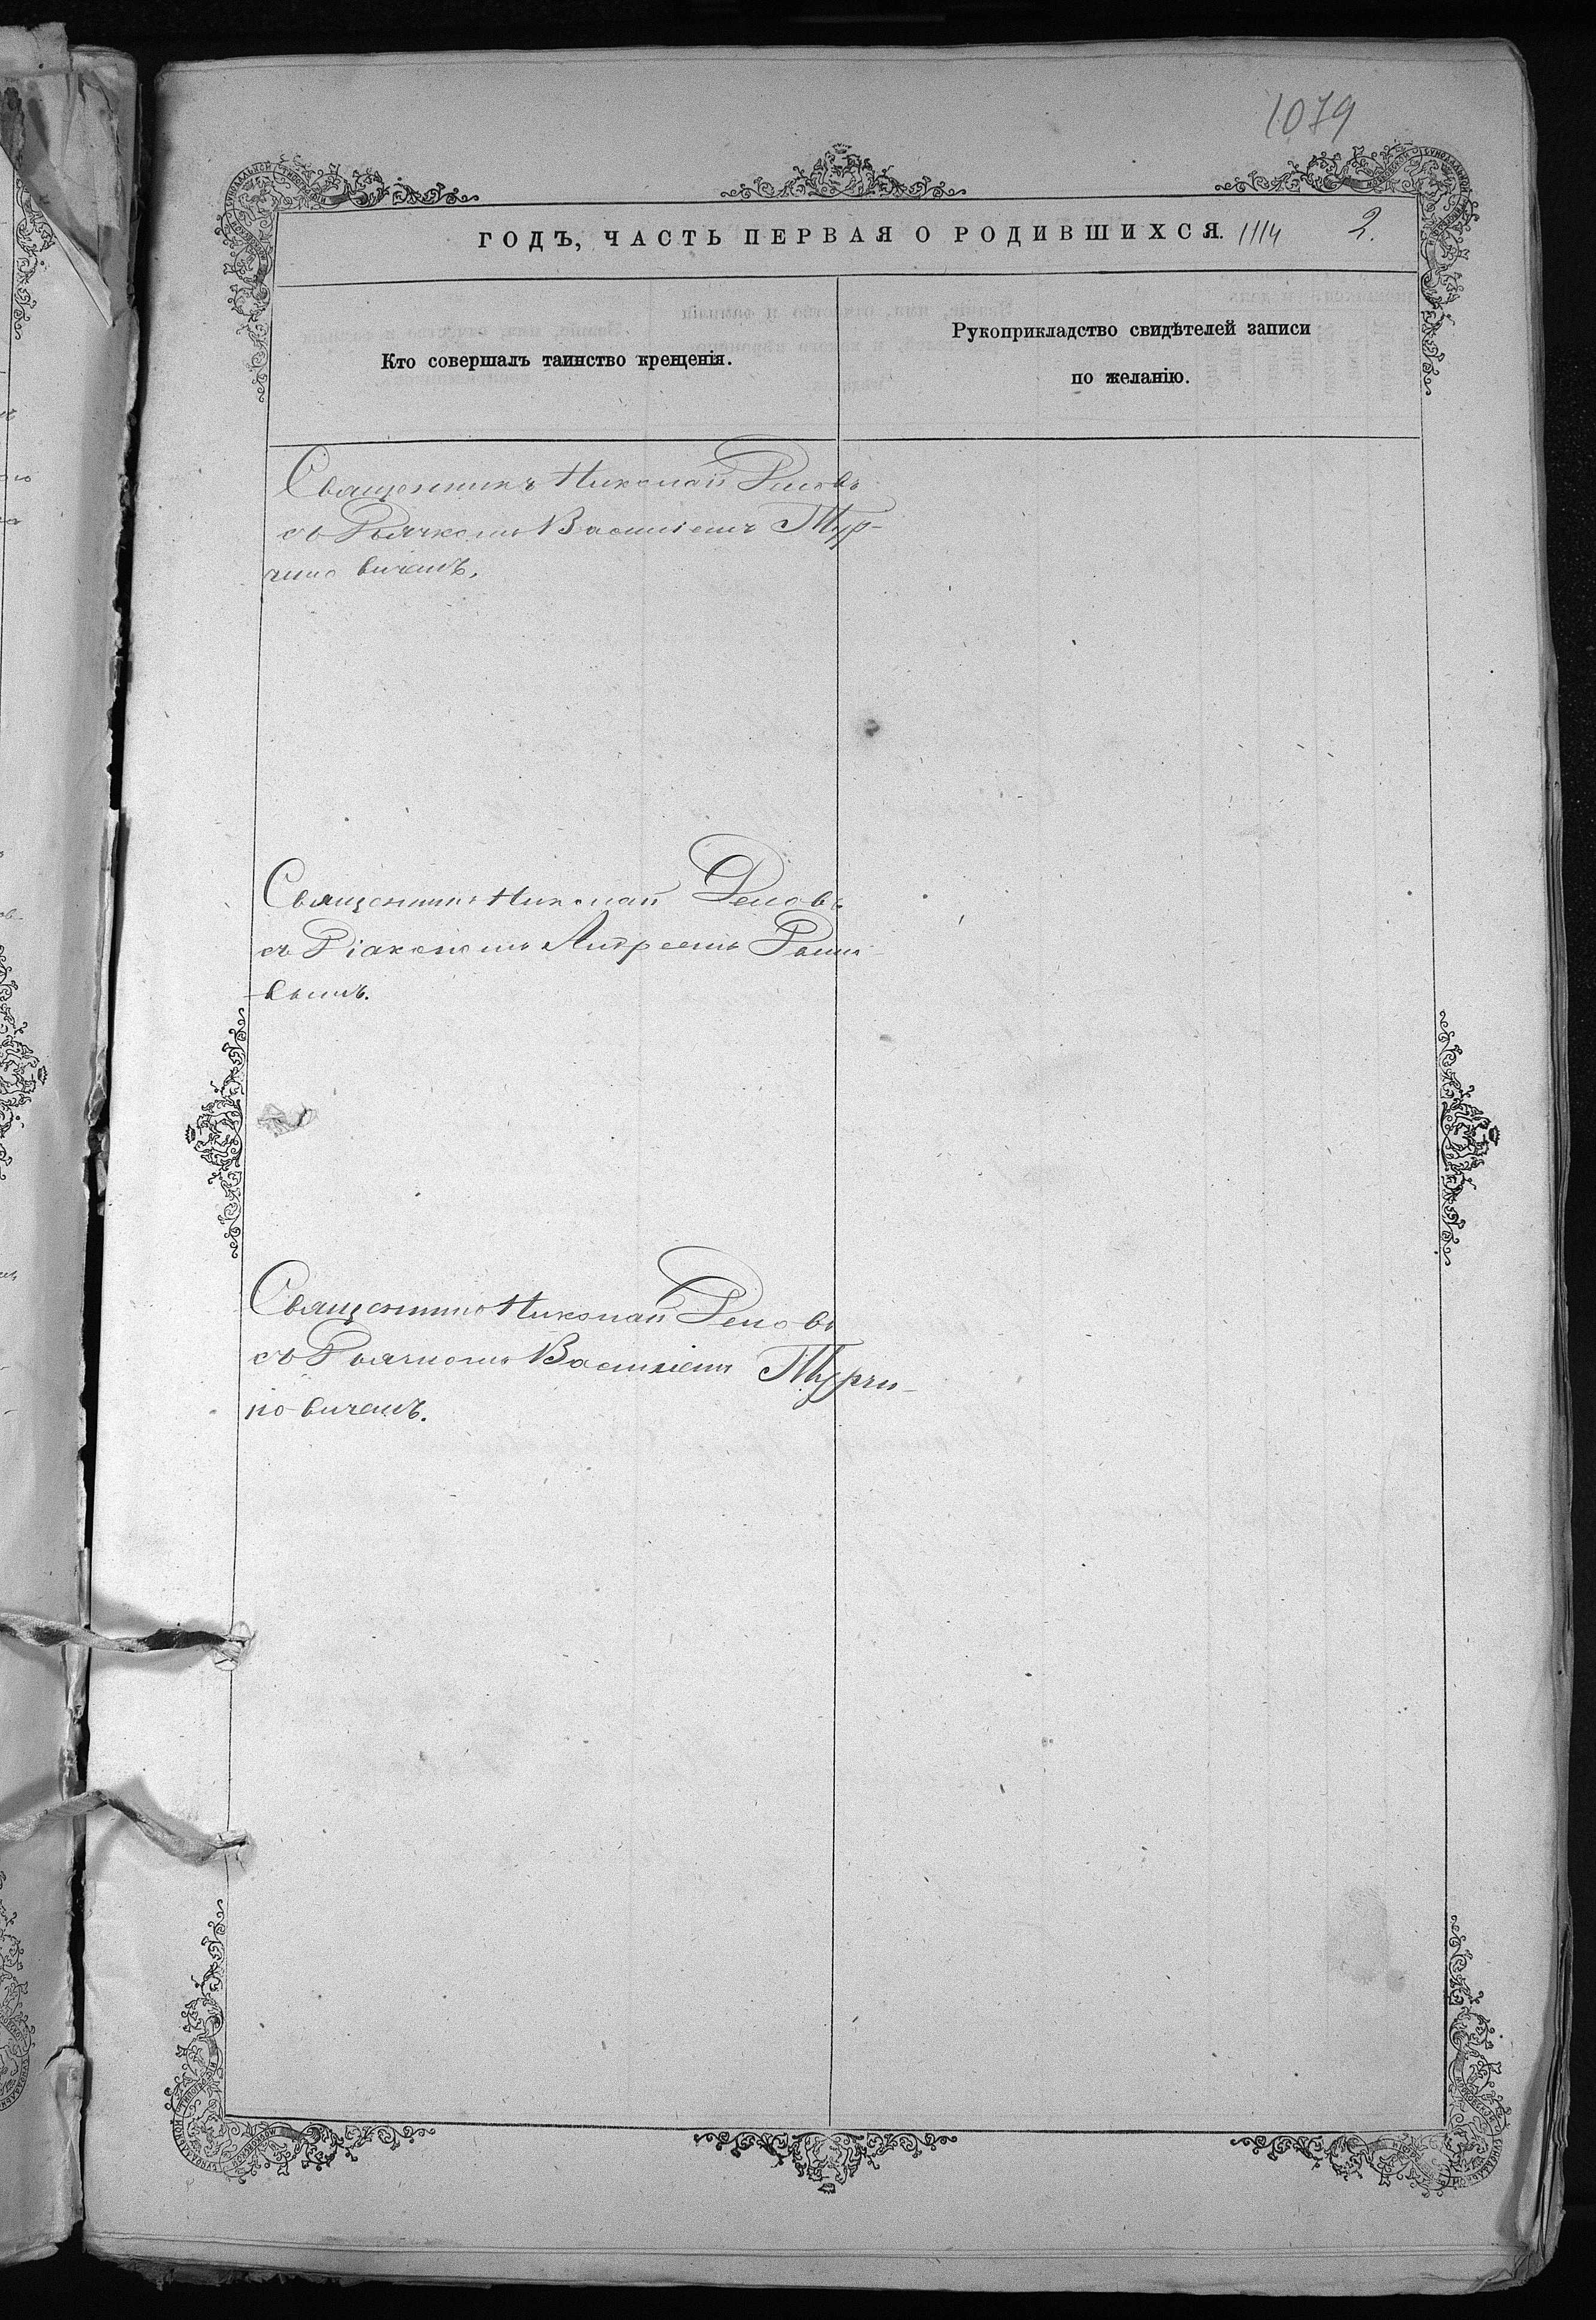 1079
ГОДЪ, ЧАСТЬ ПЕРВАЯ О РОДИВШИХСЯ. 1114 2.
Кто совершалъ таинство крещенія.
Рукоприкладство свидѣтелей записи
по желанію.
Священникъ Николай
съ Дьячкомъ Василіемъ Тур-
чиновичемъ.
Священникъ Николай
съ Діакономъ Андреемъ
Священникъ Николай
съ Дьячкомъ Василіемъ Турчи-
новичемъ.